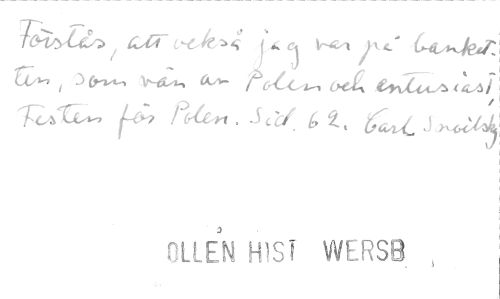 Förstås, att också jag var på banket-
ten, som vän av Polen och entusiast,
Festen för Polen. Sid. 62. Carl Snoilsky
OLLÉN HIST WERSB